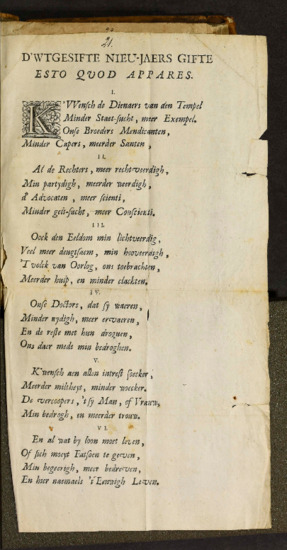 21.
D'WTGESIFTE NIEU-JAERS GIFTE
ESTO QVOD APPARES.
I.
K'Wensch de Dienaers van den Tempel
Minder Staet-sucht, meer Exempel.
Onse Broeders Mendicanten,
Minder Capers, meerder Santen,
II.
Al de Rechters, meer rechtveerdigh,
Min partydigh, meerder weerdigh,
d' Advocaten, meer scienti,
Minder gelt-sucht, meer Conscienti.
III.
Oock den Eeldom min lichtveerdig,
Veel meer deugtsaem, min hooveerdigh,
'T volck van Oorlog, ons toebrachten,
Meerder hulp, en minder clachten.
IV.
Onse Doctors, dat sy waeren,
Minder nydigh, meer ervaeren,
En de reste met hun droguen,
Ons daer mede min bedroghen.
V.
K'wensch aen allen intrest soecker,
Meerder miltheyt, minder woecker.
De vercoopers, 't sy Man, of Vrouw,
Min bedrogh, en meerder trouw.
VI.
En al wat by loon moet leven,
Of sich moeyt Fatsoen te geven,
Min begeerigh, meer bedreven,
En hier naemaels 't Eeuwigh Leven.